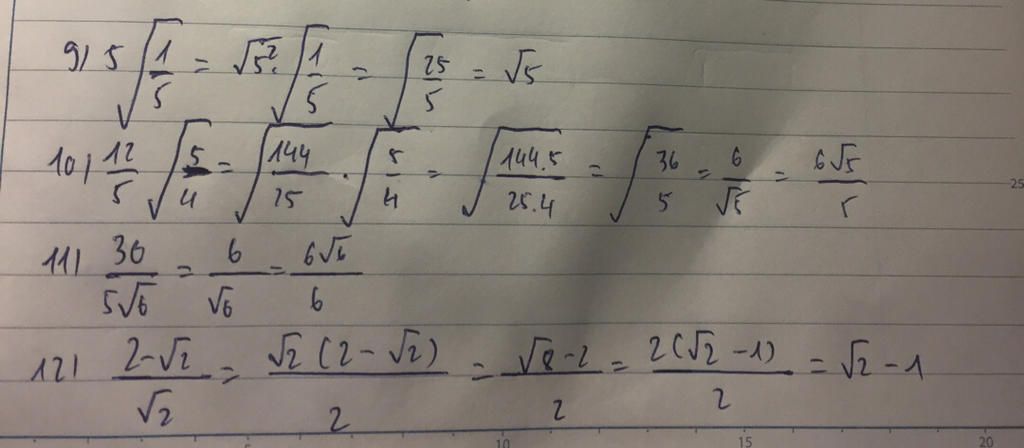 9) 5√(1/5) = √5² · √(1/5) = √(25/5) = √5
10) 12/5 √(5/4) = √(144/25) · √(5/4) = √(144.5/25.4) = √(36/5) = 6/√5 = 6√5/5
25
11) 30/5√6 = 6/√6 = 6√6/6
12) 2-√2/√2 = √2(2-√2)/2 = √8-2/2 = 2(√2-1)/2 = √2-1
5 10 15 20